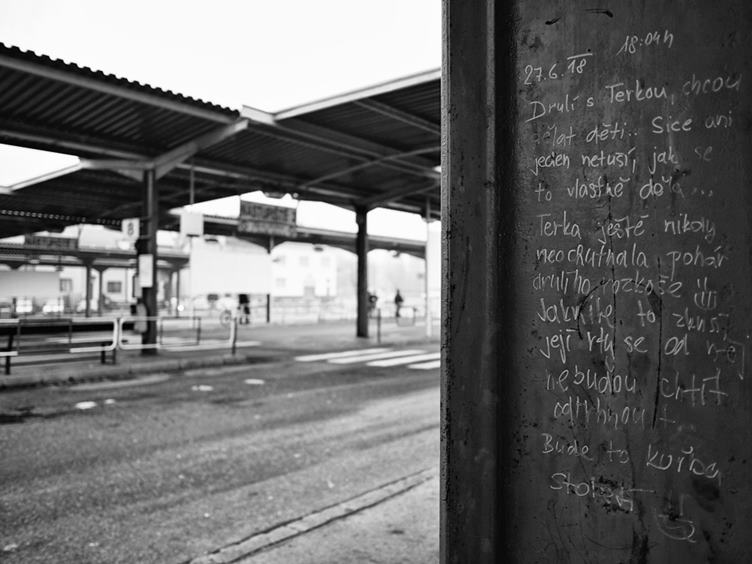 NÁSTUPIŠTĚ
8
18:04h
27.6.18
Drulí s Terkou, chcou
dělat děti.. Sice ani
jeden netuší, jak se
to vlastně dělá...
Terka ještě nikdy
neochutnala pohár
drulího rozkoše
Jakmile to zkusí,
její rty se od něj
nebudou chtít
odtrhnout.
Bude to kuřba
století